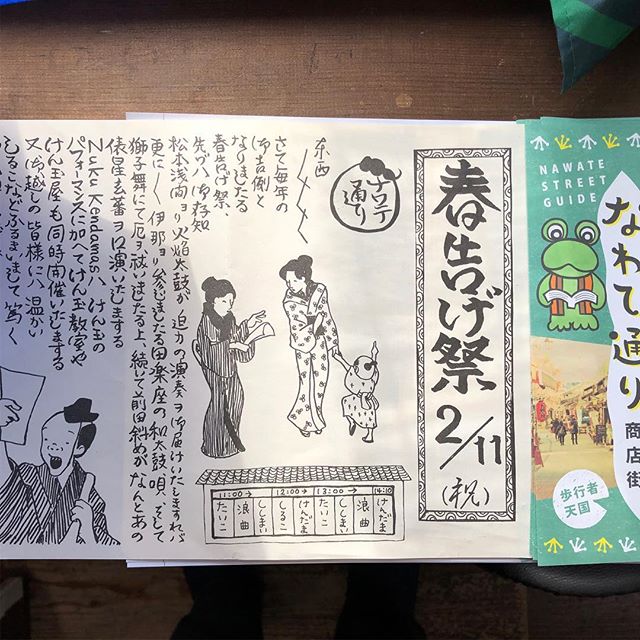 春告げ祭
2/11
(祝)
ナワテ
通り
東西
さて毎年の
御吉例と
なりましたる
春告げ祭、
先づハ御存知
松本浅間ヨリ火焔太鼓が
迫力の演奏ヲ御届けいたしますれバ
更に伊那ヨリ参じましたる田楽座の和太鼓、唄、そして
獅子舞にて厄ヲ祓いましたる上、続して前田斜めがなんとあの
俵星玄蕃ヲ口演いたしまする
Nuku Kendamasハ、けん玉の
パフォーマンスに加へてけん玉教室や
けん玉屋も同時開催いたしまする
又御越しの皆様にハ温かい
しるこなどふるまいまして
11:00→
12:00→
13:00→
14:10
たいこ
浪曲
ししまい
しるこ
けんだま
たいこ
ししまい
浪曲
けんだま
NAWATE
STREET
GUIDE
なわて通り
商店街
歩行者
天国